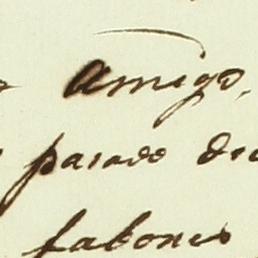 Amigo,
pasado
fabones